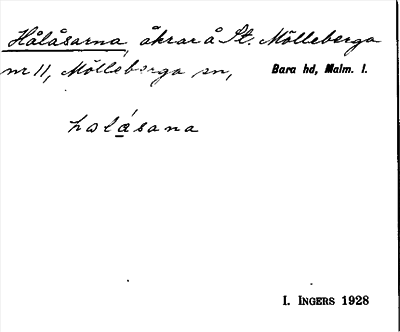 Hålåsarna, åkrar å St. Mölleberga
nr 11, Mölleberga sn, Bara hd, Malm. l.
halåsana
I. INGERS 1928